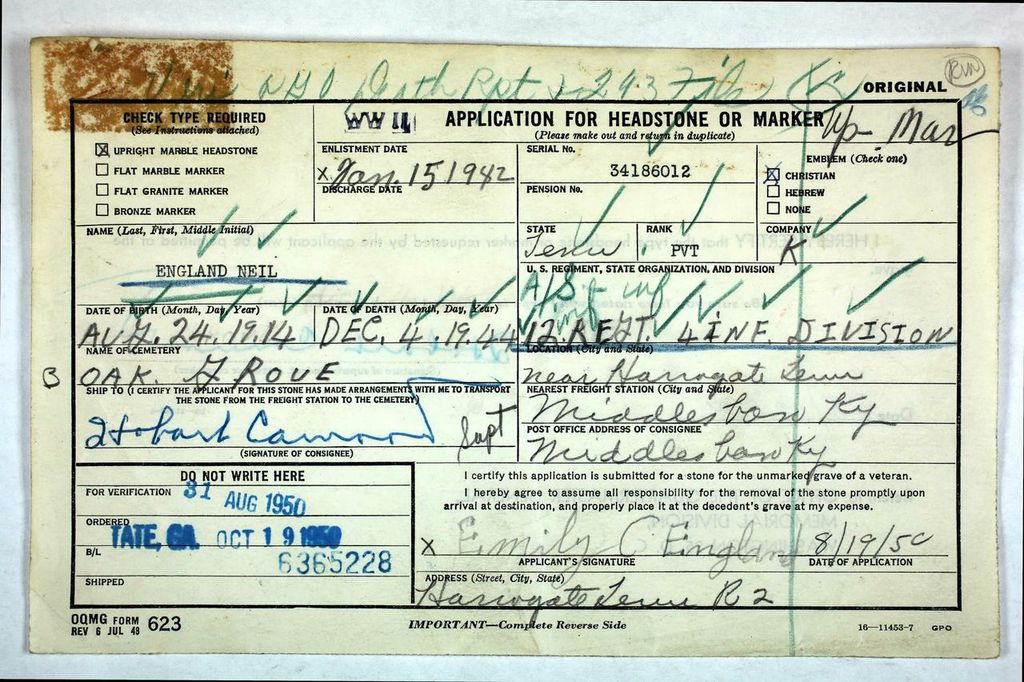 Death Rpt 293 File
ORIGINAL
CHECK TYPE REQUIRED
(See Instructions attached)
WW II
APPLICATION FOR HEADSTONE OR MARKER
(Please make out and return in duplicate)
UPRIGHT MARBLE HEADSTONE
FLAT MARBLE MARKER
FLAT GRANITE MARKER
BRONZE MARKER
ENLISTMENT DATE
x Jan. 15 1942
DISCHARGE DATE
SERIAL No.
34186012
PENSION No.
EMBLEM (Check one)
CHRISTIAN
HEBREW
NONE
NAME (Last, First, Middle Initial)
ENGLAND NEIL
STATE
Tenn
RANK
PVT
COMPANY
K
U. S. REGIMENT, STATE ORGANIZATION, AND DIVISION
inf
12 REGT. 4 INF DIVISION
DATE OF BIRTH (Month, Day, Year)
AUG. 24. 1914
DATE OF DEATH (Month, Day, Year)
DEC. 4. 1944
NAME OF CEMETERY
B OAK. GROVE
LOCATION (City and State)
near Harrogate Tenn
SHIP TO (I CERTIFY THE APPLICANT FOR THIS STONE HAS MADE ARRANGEMENTS WITH ME TO TRANSPORT
THE STONE FROM THE FREIGHT STATION TO THE CEMETERY)
Hobart Supt
(SIGNATURE OF CONSIGNEE)
NEAREST FREIGHT STATION (City and State)
Middlesboro Ky
POST OFFICE ADDRESS OF CONSIGNEE
Middlesboro Ky
DO NOT WRITE HERE
FOR VERIFICATION
31 AUG 1950
ORDERED
TATE, GA. OCT 19 1950
B/L
6365228
SHIPPED
I certify this application is submitted for a stone for the unmarked grave of a veteran.
I hereby agree to assume all responsibility for the removal of the stone promptly upon
arrival at destination, and properly place it at the decedent's grave at my expense.
x Emily C England 8/19/50
APPLICANT'S SIGNATURE DATE OF APPLICATION
ADDRESS (Street, City, State)
Harrogate Tenn R 2
OQMG FORM
REV 6 JUL 48 623
IMPORTANT—Complete Reverse Side
16—11453-7 GPO